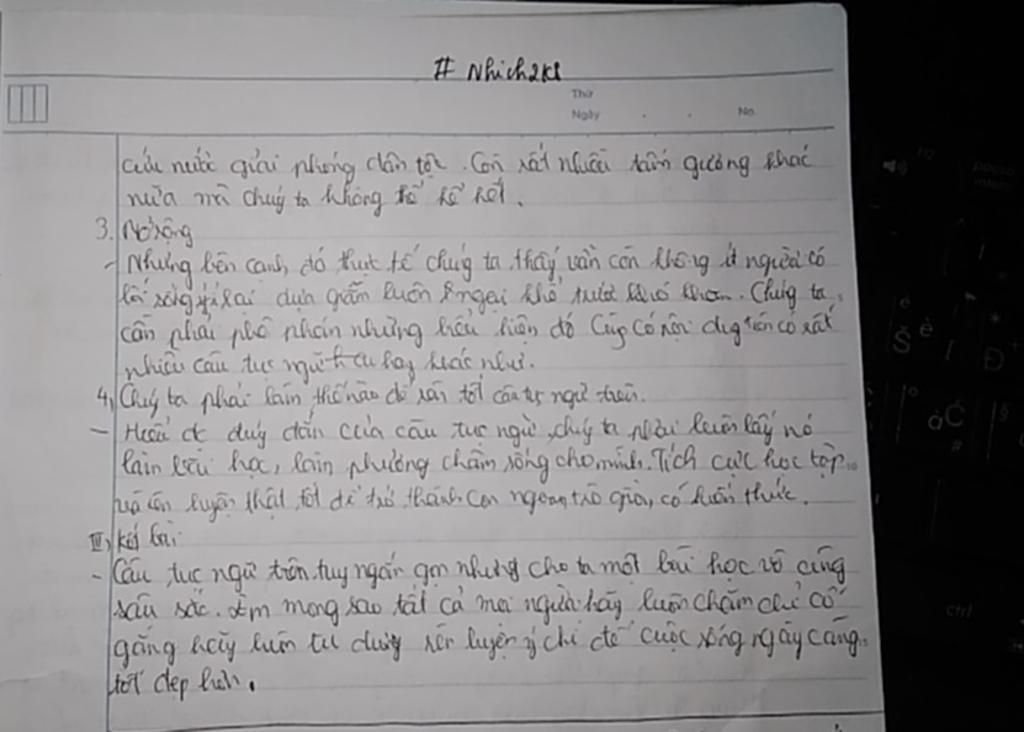 # Nhich2k8
Thứ
Ngày . . No.
cứu nước giải phóng dân tộc. Còn rất nhiều tấm gương khác
nữa mà chúng ta không thể kể hết.
3. Mở rộng
- Nhưng bên cạnh đó thực tế chúng ta thấy vẫn còn không ít người có
lối sống ỷ lại dựa dẫm luôn ngại khổ trước khó khăn. Chúng ta
cần phải phê phán những biểu hiện đó Cũng có nội dung trên có rất
nhiều câu tục ngữ hay khác như.
4, Chúng ta phải làm thế nào để tốt câu tục ngữ trên.
- Hiểu đúng đắn của câu tục ngữ, chúng ta phải luôn lấy nó
làm bài học, làm phương châm sống cho mình. Tích cực học tập
và rèn luyện thật tốt để trở thành con ngoan trò giỏi, có kiến thức.
III, Kết bài
- Câu tục ngữ trên tuy ngắn gọn nhưng cho ta một bài học vô cùng
sâu sắc. Em mong sao tất cả mọi người hãy luôn chăm chỉ cố
gắng hãy luôn tu dưỡng rèn luyện ý chí để cuộc sống ngày càng
tốt đẹp hơn.
ctrl